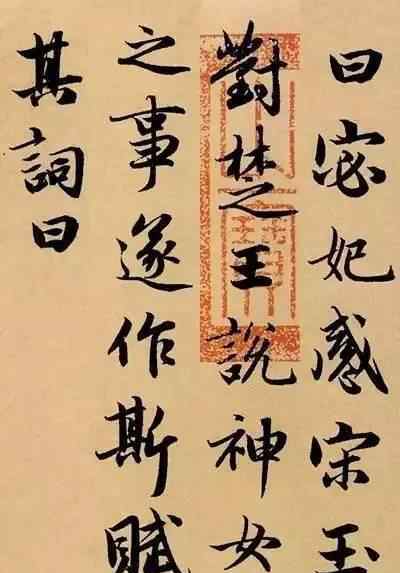 曰宓妃感宋玉
對楚王說神女
之事遂作斯賦
其詞曰